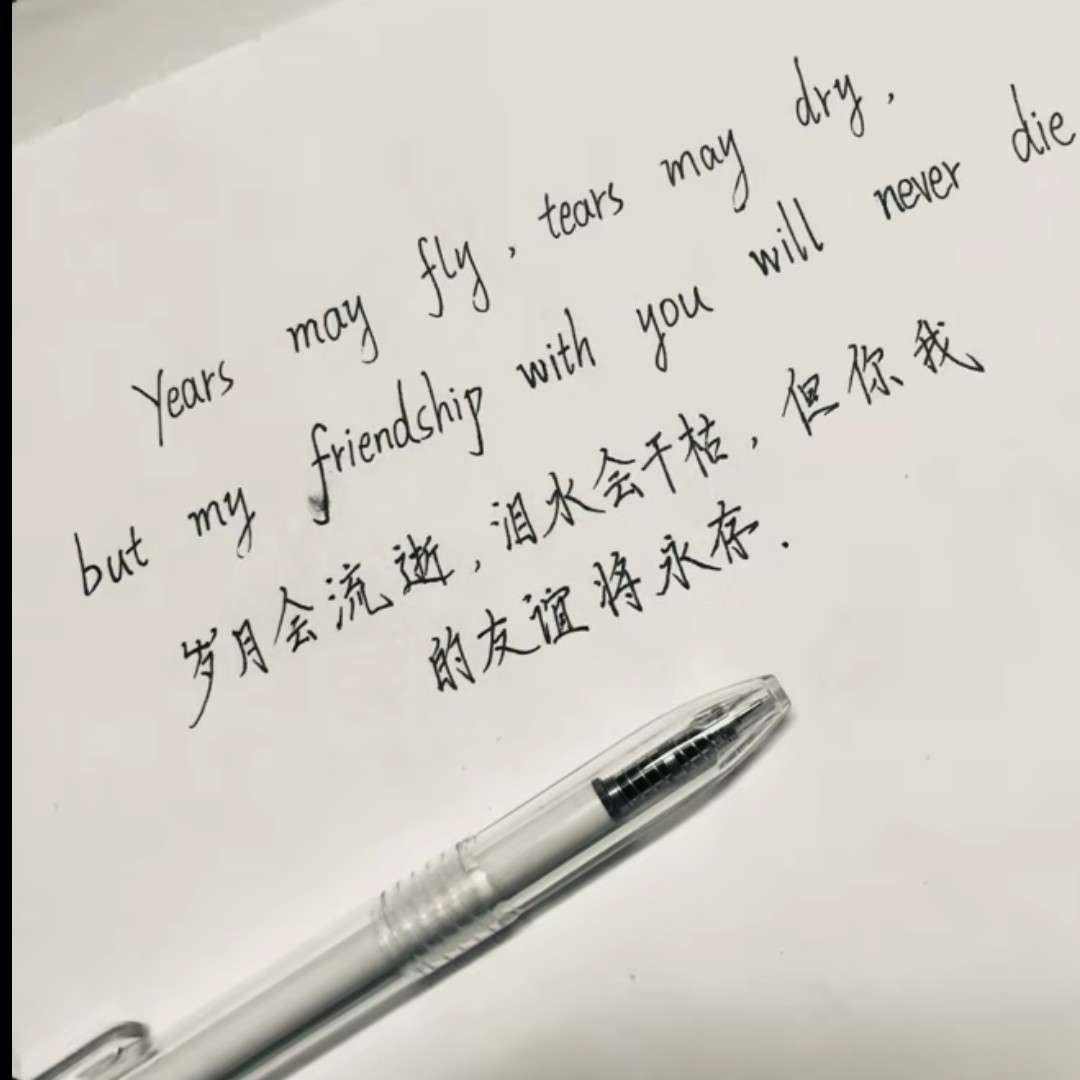 Years may fly, tears may dry,
but my friendship with you will never die
岁月会流逝，泪水会干枯，但你我
的友谊将永存.